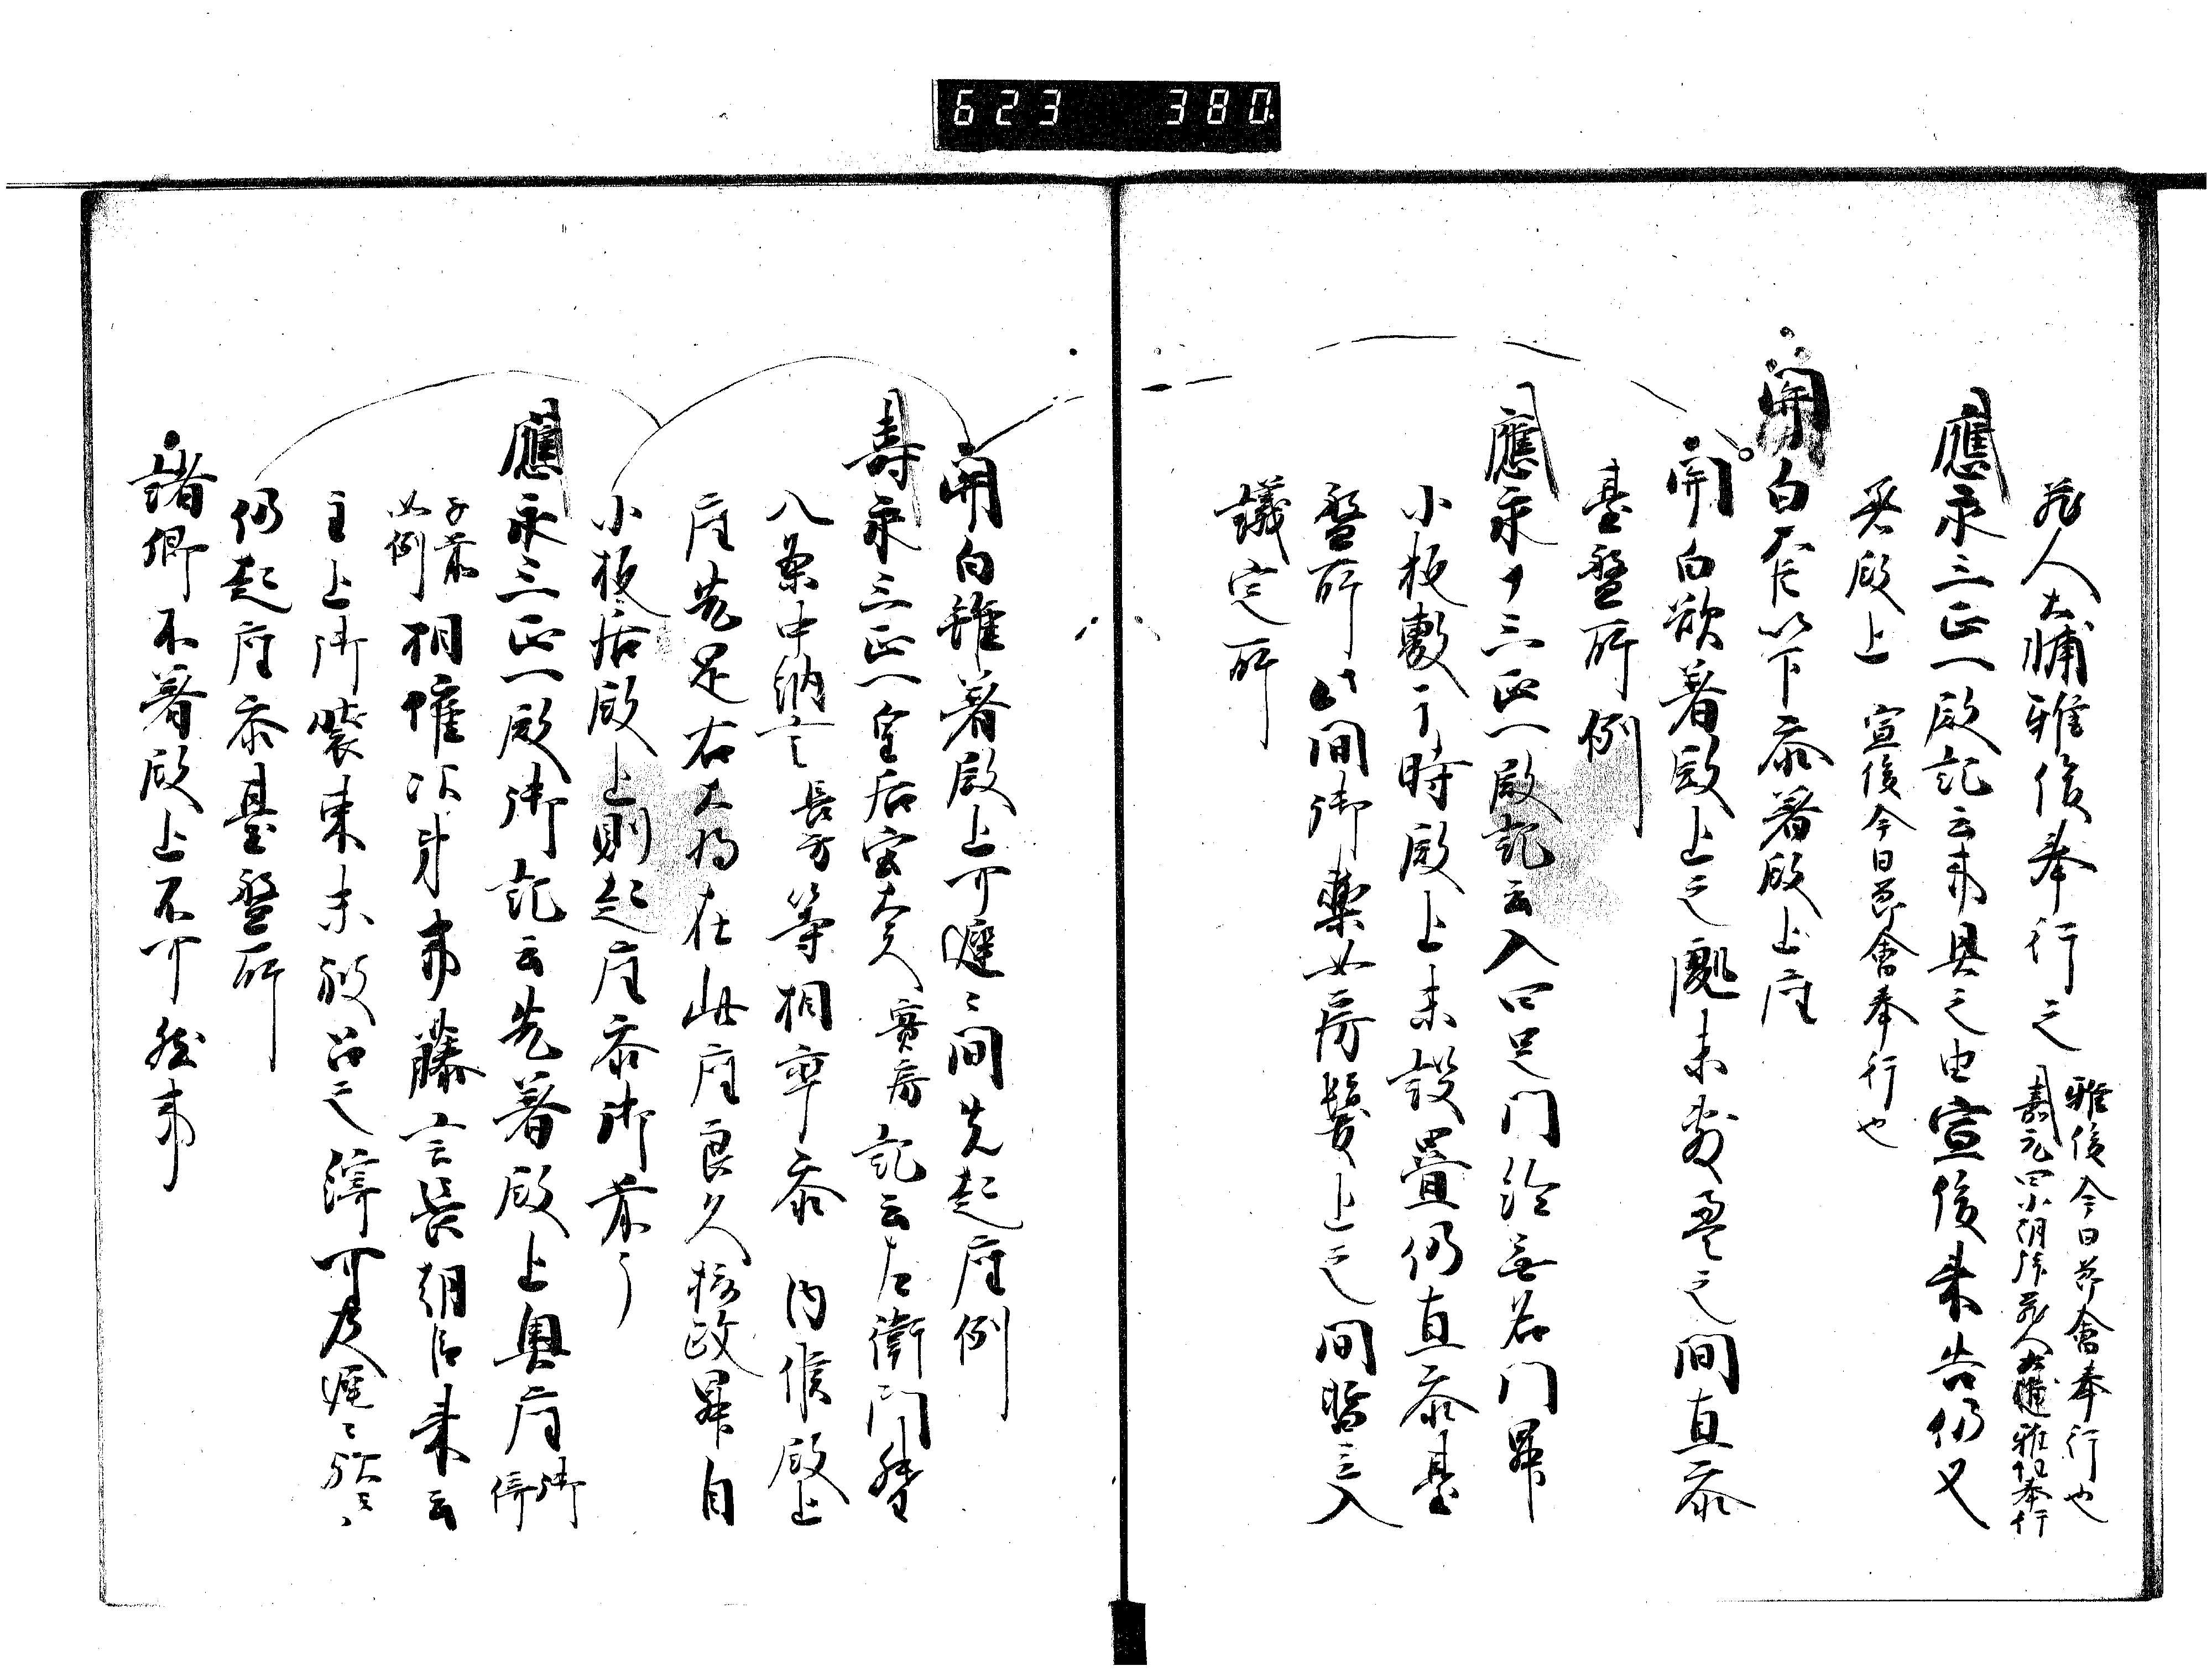 623 380
蔵人大輔雅俊奉行之
雅俊今日節會奉行也
嘉元四小朝拝蔵人大輔雅俊奉行
應永三正一殿記云事具之由宣俊来告仍又
昇殿上 宣俊今日節會奉行也
関白大臣以下参着殿上座
関白欲着殿上之處未敷畳之間直参
臺盤所例
應永十三正一殿記云入四足門経無名門昇
小板敷于時殿上未設畳仍直参臺
盤所此間御薬女房鬢上之間暫立入
議定所
関白雖着殿上可遅之間先起座例
壽永三正一皇后宮大夫實房記云左衛門督
八条中納言長方等相率参内候殿上
座先是右大将在此座良久摂政昇自
小板居殿上則起座参御前了
應永三正一殿御記云先着殿上奥座御
子前
如例相催次第事藤宰相長朝臣来云
主上御装束未被召之溝可及遅々歟云々
仍起座参臺盤所
諸卿不着殿上不可然事